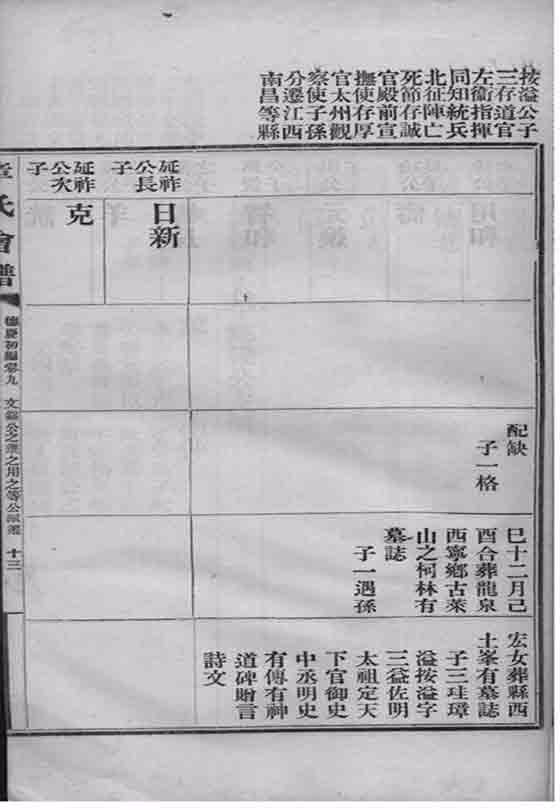 按溢公子
三存道官
左衞指揮
同知統兵
北征陣亡
死節存誠
官殿前宣
撫使存厚
官太州觀
察使子孫
分遷江西
南昌等縣
延祚
公長
子
日新
延祚
公次
子
克
配缺
子一格
巳十二月己
酉合葬龍泉
西寧鄉古萊
山之柯林有
墓誌
子一遇孫
宏女葬縣西
土峯有墓誌
子三珪璋
溢按溢字
三益佐明
太祖定天
下官御史
中丞明史
有傳有神
道碑贈言
詩文
章氏會譜
德慶初編卷九
十三